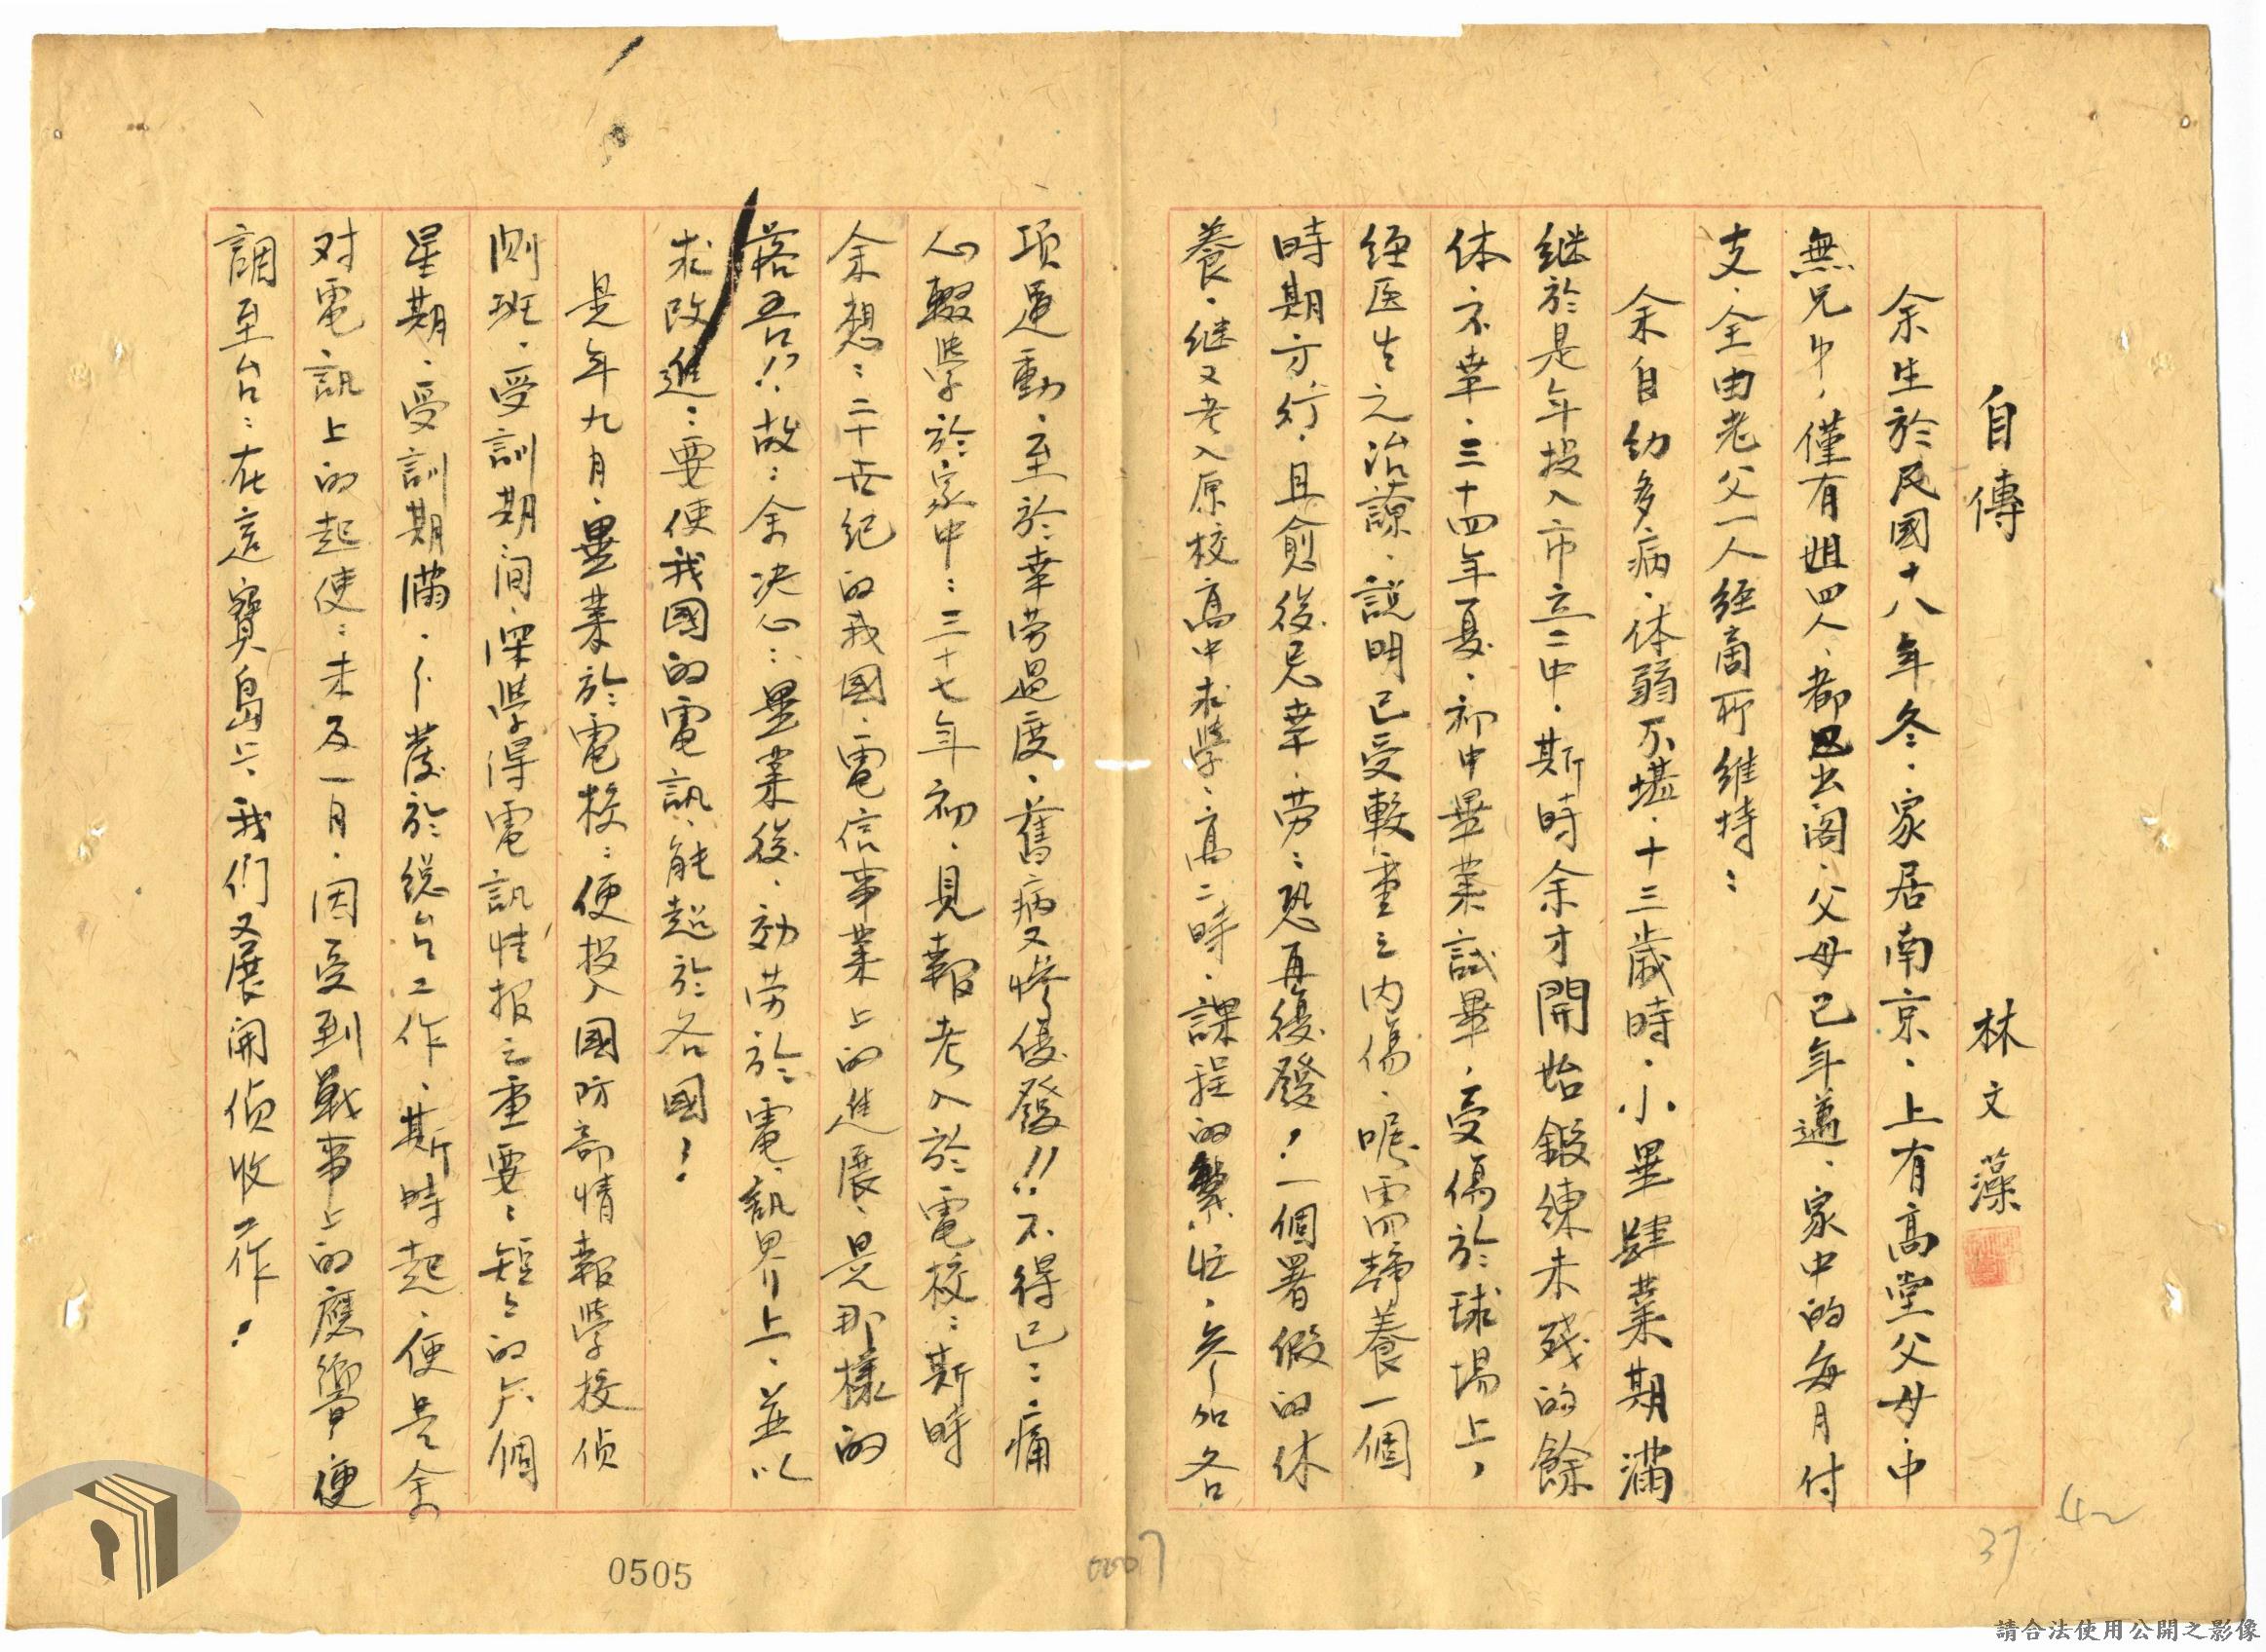 自傳 林文藻
余生於民國十八年冬、家居南京、上有高堂父母、中
無兄弟，僅有姐四人、都已出阁、父母已年邁、家中的每月付
支、全由老父一人经商所維持：
余自幼多病、体弱不堪、十三歲時、小畢肆業期滿
继於是年投入市立二中、斯時余才開始鍛練未残的餘
体、不幸、三十四年夏、初中畢業試畢，受傷於球場上，
经医生之治諒、說明已受較重之内傷、需靜養一個
時期方行、且愈後忌幸、劳：恐再復發！一個署假的休
養、继又考入原校高中求學、高二時、課程的繁忙、參加各
項運動、至於幸劳過度、舊病又慘復發!!不得已：痛
心輟學於家中：三十七年初、見報考入於電校：斯時
余想：二十世紀的我國、電信事業上的進展、是那樣的
落吾!!故：余决心：畢業後、効劳於電訊界上、並以
求改進：要使我國的電訊、能超於各國！
是年九月、畢業於電校：便投入國防部情報學校侦
测班、受訓期间、深學得電訊情报之重要：短々的六個
星期、受訓期滿、分發於総台工作、斯時起、便是余
对電訊上的起使：未及一月、因受到戰事上的應響、便
調至台：在這寶島上、我们又展開侦收工作！
0505
37
42
請合法使用公開之影像